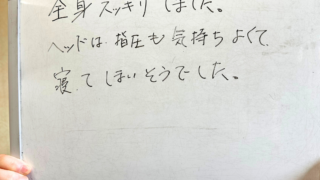 全身スッキリしました。
ヘッドは、指圧も気持ちよくて、
寝てしまいそうでした。